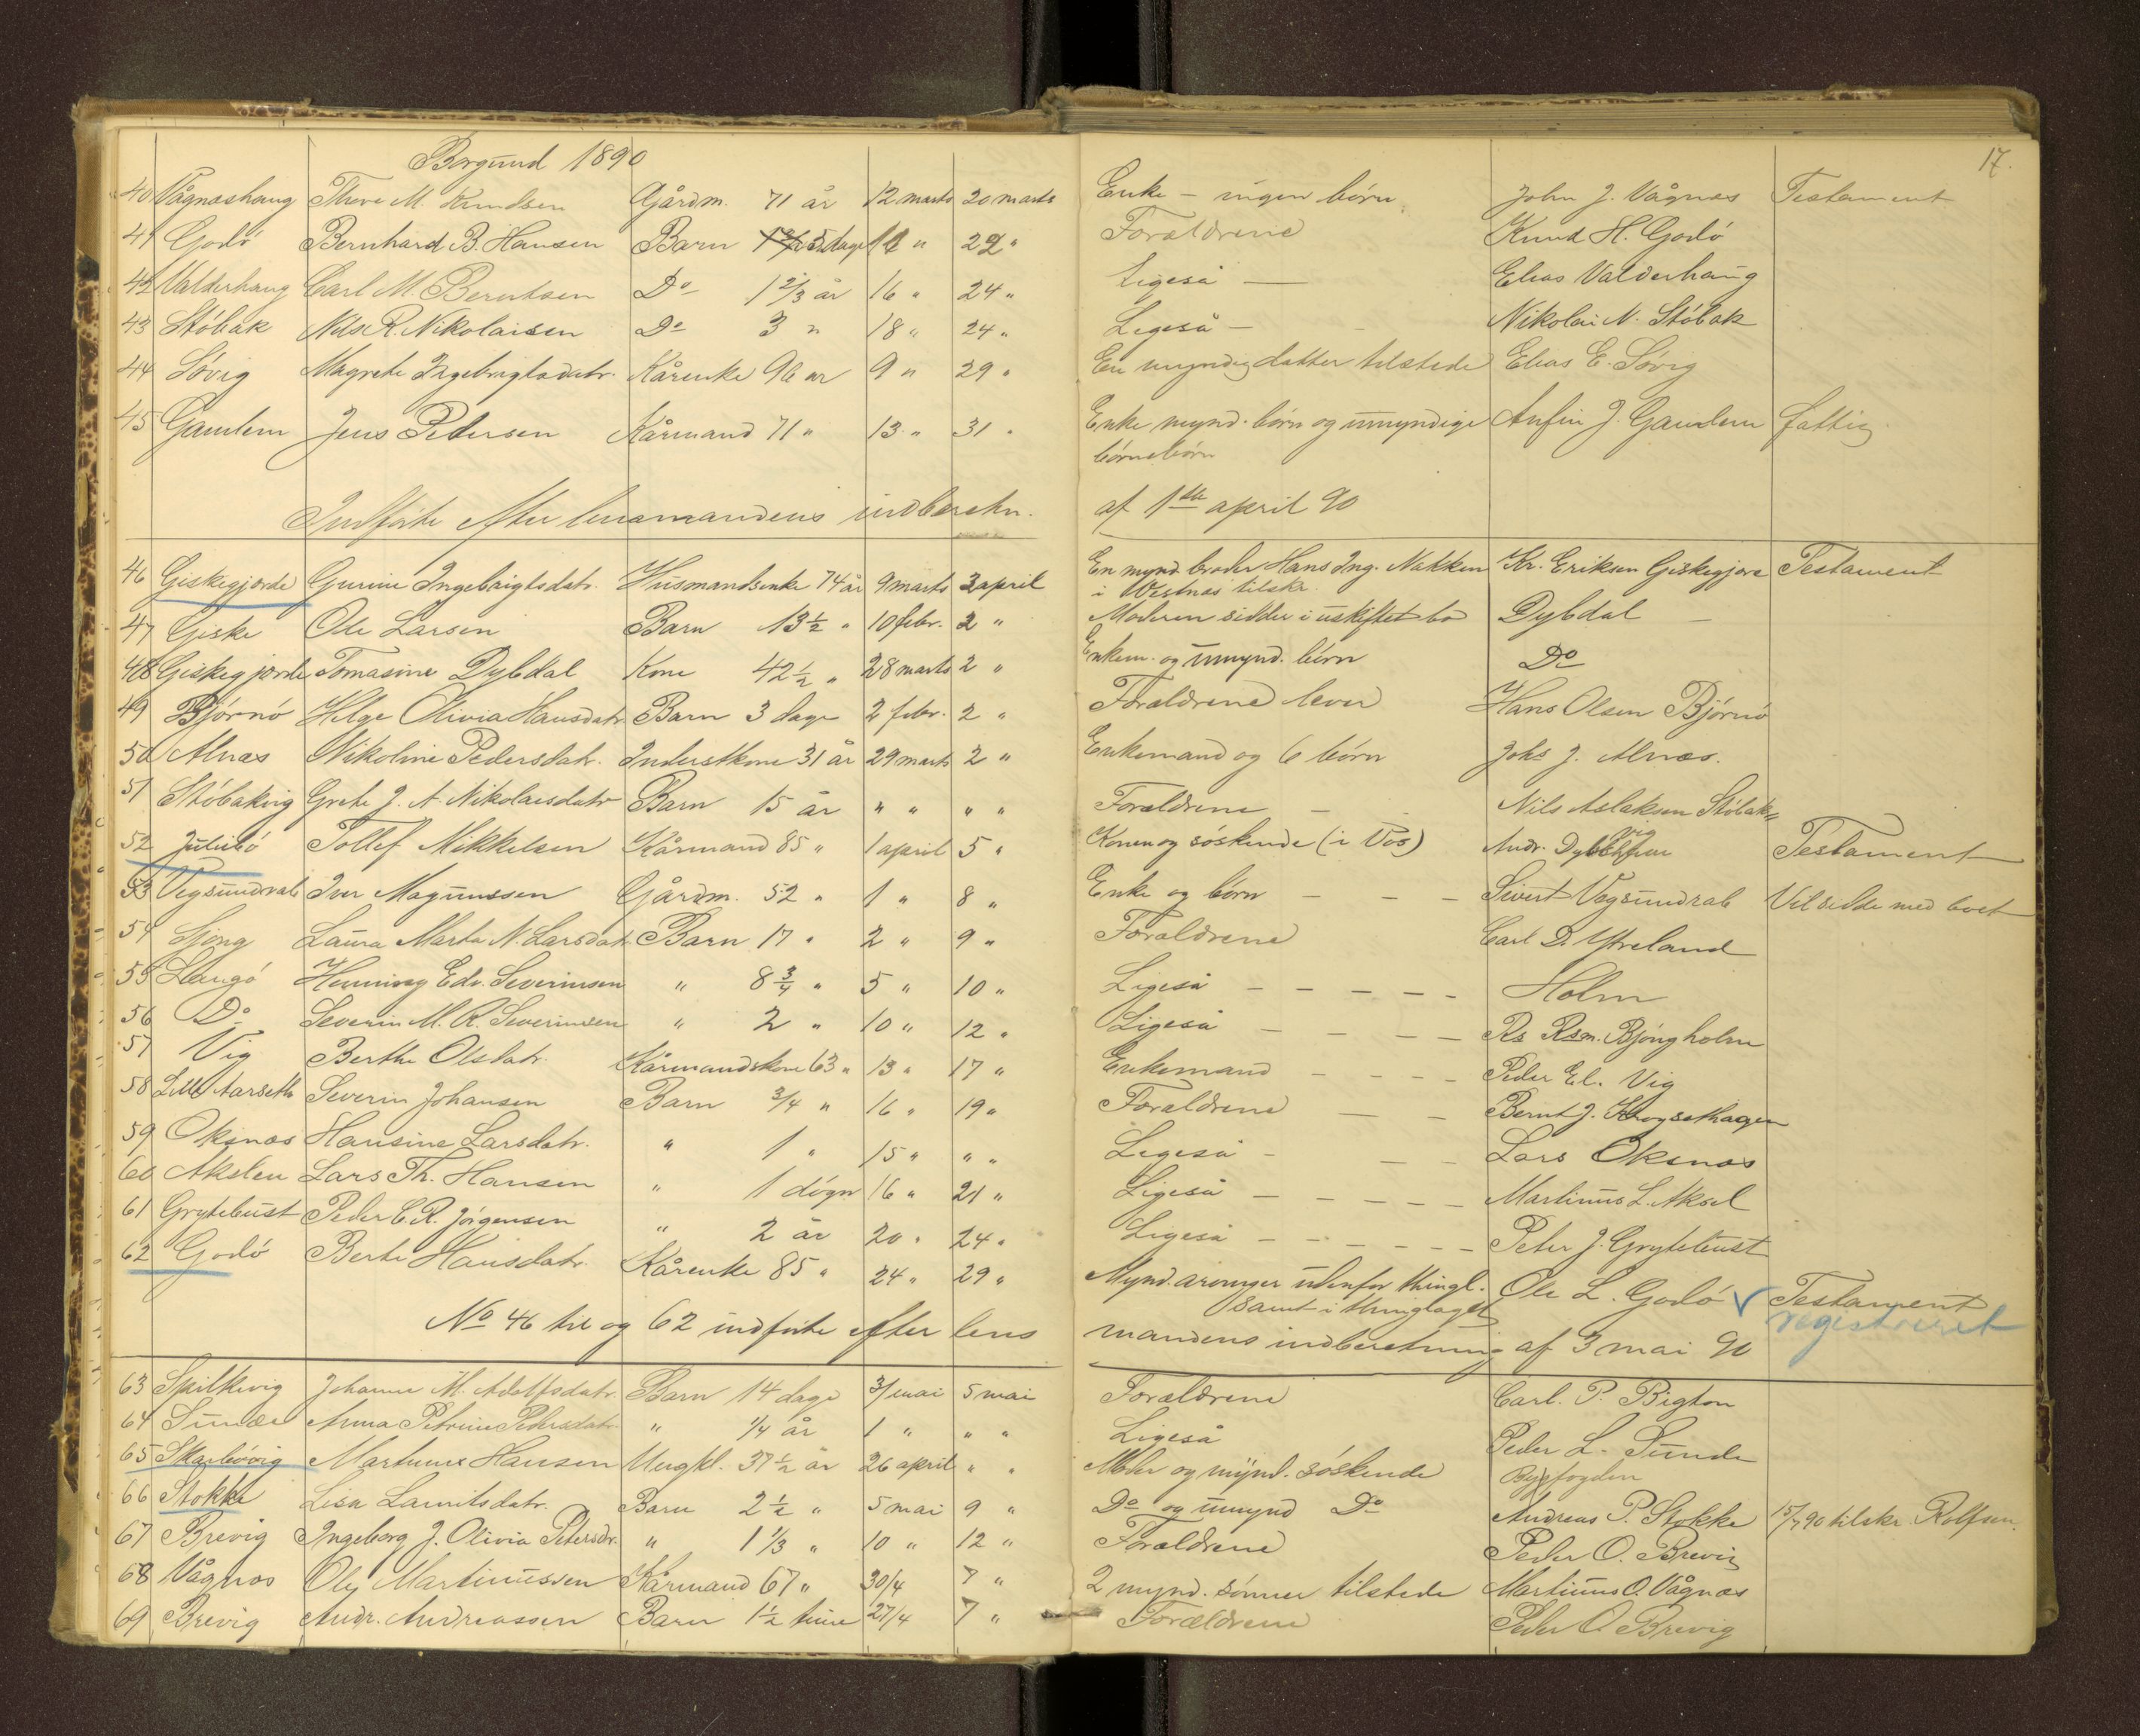 Borgund 1890
17.
40 Vågnæshaug Theve M. Knudsen Gårdm. 71 år 12 marts 20 marts Enke – ingen børn John J. Vågnæs Testament
41 Godø Bernhard B. Hansen Barn 5 dage 16 " 22 " Forældrene Knud H. Godø
42 Valderhaug Carl M. Berntsen Do 1 2/3 år 16 " 24 " Ligeså — Elias Valderhaug
43 Støbak Nils R. Nikolaisen Do 3 " 18 " 24 " Ligeså – Nikolai N. Støbak
44 Søvig Magrete Ingebrigtsdatr. Kårenke 96 år 9 " 29 " En myndig datter tilstede Elias E. Søvig
45 Gamlem Jens Petersen Kårmand 71 " 13 " 31 " Enke mynd. børn og umyndige Anfin J. Gamlem fattig
børnebørn
Indførte efter lensmandens indberetn. af 1ste april 90
46 Giskegjerde Gurine Ingebrigtsdatr. Husmandsenke 74 år 9 marts 3 april En mynd. broder Hans Ing. Nakken Kr. Eriksen Giskegjære Testament
i Vestnæs tilskr.
47 Giske Ole Larsen Barn 13½ " 10 febr. 2 " Moderen sidder i uskiftet bo Dybdal –
48 Giskegjerde Tomasine Dybdal Kone 42½ " 28 marts 2 " Enkem. og umynd. børn Do
49 Bjørnø Helge Olivia Hansdatr. Barn 3 dage 2 febr. 2 " Forældrene lever Hans Olsen Bjørnø
50 Alnæs Nikoline Pedersdatr. Inderstkone 31 år 29 marts 2 " Enkemand og 6 børn Johs J. Alnæs.
51 Støbakvig Grete J. A. Nikolaisdatr Barn 15 år " " " " Forældrene – Nils Aslaksen Støbakvig
52 Julebø Tollef Mikkelsen Kårmand 85 " 1 april 5 " Konen og søskende (i Vos) Andr. Testament
53 Vegsundral Iver Magnussen Gårdm. 52 " 1 " 8 " Enke og børn – – – Sivert Vegsundral Vil sidde med boet
54 Sjong Laura Marta N. Larsdatr. Barn 17 " 2 " 9 " Forældrene Carl D. Ytreland
55 Langø Henning Edv. Severinsen " 8¾ " 5 " 10 " Ligeså – – – – – Holm
56 Do Severin M. R. Severinsen " 2 " 10 " 12 " Ligeså – – – – Rs Rsm. Bjøngholm
57 Vig Berthe Olsdatr. Kårmandskone 63 " 13 " 17 " Enkemand – – – – Peder El. Vig
58 Lille Aarseth Severin Johansen Barn ¾ " 16 " 19 " Forældrene – – Bernt J. Krogsethagen
59 Oksnæs Hansine Larsdatr. " 1 " 15 " " " Ligeså – – – Lars Oksnæs
60 Akslen Lars Th. Hansen " 1 døgn 16 " 21 " Ligeså – – – – – Martinus L. Aksel
61 Grytebust Peder C. R. Jørgensen " 2 år 20 " 24 " Ligeså – – – – – Peter J. Grytebust
62 Godø Berte Hansdatr. Kårenke 85 " 24 " 29 " Mynd. arvinger udenfor thingl. Ole L. Godø Testament
samt i thinglaget registreret
No 46 til og 62 indførte efter lensmandens indberetning af 3 mai 90
63 Spilkevig Johanne M. Adolfsdatr. Barn 14 dage 3/ mai 5 mai Forældrene Carl. P. Bigton
64 Sunde Anna Petrine Pedersdatr. " ¼ år 1 " " " Ligeså Peder L. Sunde
65 Skarbøvig Martinus Hansen Ungkl. 37½ år 26 april " " Moder og mynd. søskende Byfogden
66 Stokke Lisa Lauritsdatr. Barn 2½ " 5 mai 9 " Do og umynd Do Andreas P. Stokke 15/7 90 tilskr. Rolfsen.
67 Brevig Ingeborg J. Olivia Petersdr. " 1 1/3 " 10 " 12 " Forældrene Peder O. Brevig
68 Vågnæs Ole Martinussen Kårmand 67 " 30/4 7 " 2 mynd. sønner tilstede Martinus O. Vågnæs
69 Brevig Andr. Andreassen Barn 1½ time 27/4 7 " Forældrene Peder O. Brevig